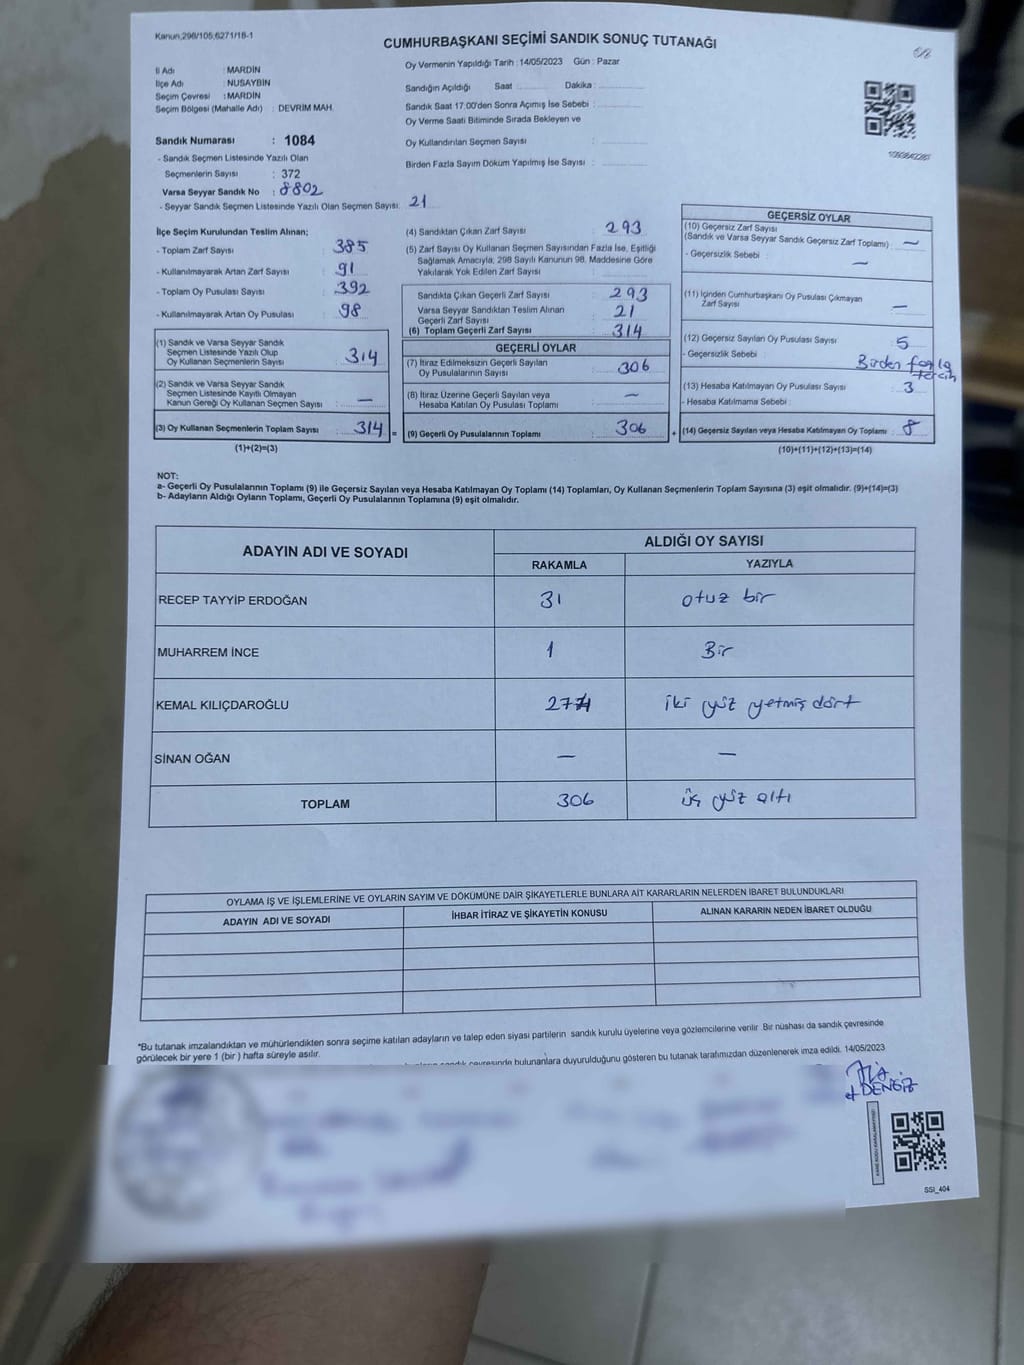 Kanun,298/105,6271/18-1
CUMHURBAŞKANI SEÇİMİ SANDIK SONUÇ TUTANAĞI
İl Adı : MARDİN
İlçe Adı : NUSAYBİN
Seçim Çevresi : MARDİN
Seçim Bölgesi (Mahalle Adı) : DEVRİM MAH.
Sandık Numarası : 1084
- Sandık Seçmen Listesinde Yazılı Olan
Seçmenlerin Sayısı : 372
Varsa Seyyar Sandık No : 8802
- Seyyar Sandık Seçmen Listesinde Yazılı Olan Seçmen Sayısı: 21
Oy Vermenin Yapıldığı Tarih : 14/05/2023 Gün : Pazar
Sandığın Açıldığı Saat Dakika :
Sandık Saat 17.00'den Sonra Açımış İse Sebebi :
Oy Verme Saati Bitiminde Sırada Bekleyen ve
Oy Kullandırılan Seçmen Sayısı :
Birden Fazla Sayım Döküm Yapılmış İse Sayısı :
İlçe Seçim Kurulundan Teslim Alınan;
- Toplam Zarf Sayısı : 385
- Kullanılmayarak Artan Zarf Sayısı : 91
- Toplam Oy Pusulası Sayısı : 392
- Kullanılmayarak Artan Oy Pusulası : 98
(1) Sandık ve Varsa Seyyar Sandık
Seçmen Listesinde Yazılı Olup
Oy Kullanan Seçmenlerin Sayısı : 314
(2) Sandık ve Varsa Seyyar Sandık
Seçmen Listesinde Kayıtlı Olmayan
Kanun Gereği Oy Kullanan Seçmen Sayısı : —
(3) Oy Kullanan Seçmenlerin Toplam Sayısı : 314 =
(1)+(2)=(3)
(4) Sandıktan Çıkan Zarf Sayısı : 293
(5) Zarf Sayısı Oy Kullanan Seçmen Sayısından Fazla İse, Eşitliği
Sağlamak Amacıyla, 298 Sayılı Kanunun 98. Maddesine Göre
Yakılarak Yok Edilen Zarf Sayısı :
Sandıkta Çıkan Geçerli Zarf Sayısı : 293
Varsa Seyyar Sandıktan Teslim Alınan
Geçerli Zarf Sayısı : 21
(6) Toplam Geçerli Zarf Sayısı : 314
GEÇERLİ OYLAR
(7) İtiraz Edilmeksizin Geçerli Sayılan
Oy Pusulalarının Sayısı : 306
(8) İtiraz Üzerine Geçerli Sayılan veya
Hesaba Katılan Oy Pusulası Toplamı : —
(9) Geçerli Oy Pusulalarının Toplamı : 306 +
GEÇERSİZ OYLAR
(10) Geçersiz Zarf Sayısı
(Sandık ve Varsa Seyyar Sandık Geçersiz Zarf Toplamı) : —
- Geçersizlik Sebebi : —
(11) İçinden Cumhurbaşkanı Oy Pusulası Çıkmayan
Zarf Sayısı : —
(12) Geçersiz Sayılan Oy Pusulası Sayısı : 5
- Geçersizlik Sebebi : Birden fazla
tercih
(13) Hesaba Katılmayan Oy Pusulası Sayısı : 3
- Hesaba Katılmama Sebebi :
(14) Geçersiz Sayılan veya Hesaba Katılmayan Oy Toplamı : 8
(10)+(11)+(12)+(13)=(14)
NOT:
a- Geçerli Oy Pusulalarının Toplamı (9) ile Geçersiz Sayılan veya Hesaba Katılmayan Oy Toplamı (14) Toplamları, Oy Kullanan Seçmenlerin Toplam Sayısına (3) eşit olmalıdır. (9)+(14)=(3)
b- Adayların Aldığı Oyların Toplamı, Geçerli Oy Pusulalarının Toplamına (9) eşit olmalıdır.
ADAYIN ADI VE SOYADI
ALDIĞI OY SAYISI
RAKAMLA YAZIYLA
RECEP TAYYİP ERDOĞAN 31 otuz bir
MUHARREM İNCE 1 Bir
KEMAL KILIÇDAROĞLU 274 iki yüz yetmiş dört
SİNAN OĞAN — —
TOPLAM 306 üç yüz altı
OYLAMA İŞ VE İŞLEMLERİNE VE OYLARIN SAYIM VE DÖKÜMÜNE DAİR ŞİKAYETLERLE BUNLARA AİT KARARLARIN NELERDEN İBARET BULUNDUKLARI
ADAYIN ADI VE SOYADI İHBAR İTİRAZ VE ŞİKAYETİN KONUSU ALINAN KARARIN NEDEN İBARET OLDUĞU
*Bu tutanak imzalandıktan ve mühürlendikten sonra seçime katılan adayların ve talep eden siyasi partilerin sandık kurulu üyelerine veya gözlemcilerine verilir. Bir nüshası da sandık çevresinde
görülecek bir yere 1 (bir) hafta süreyle asılır.
sandık çevresinde bulunanlara duyurulduğunu gösteren bu tutanak tarafımızdan düzenlenerek imza edildi. 14/05/2023
DENGİZ
SSİ_404